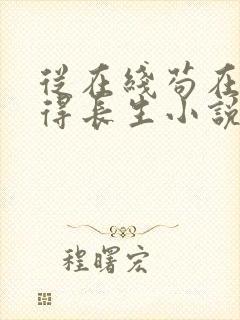 從在綫茍在
得長生小說
程曙宏